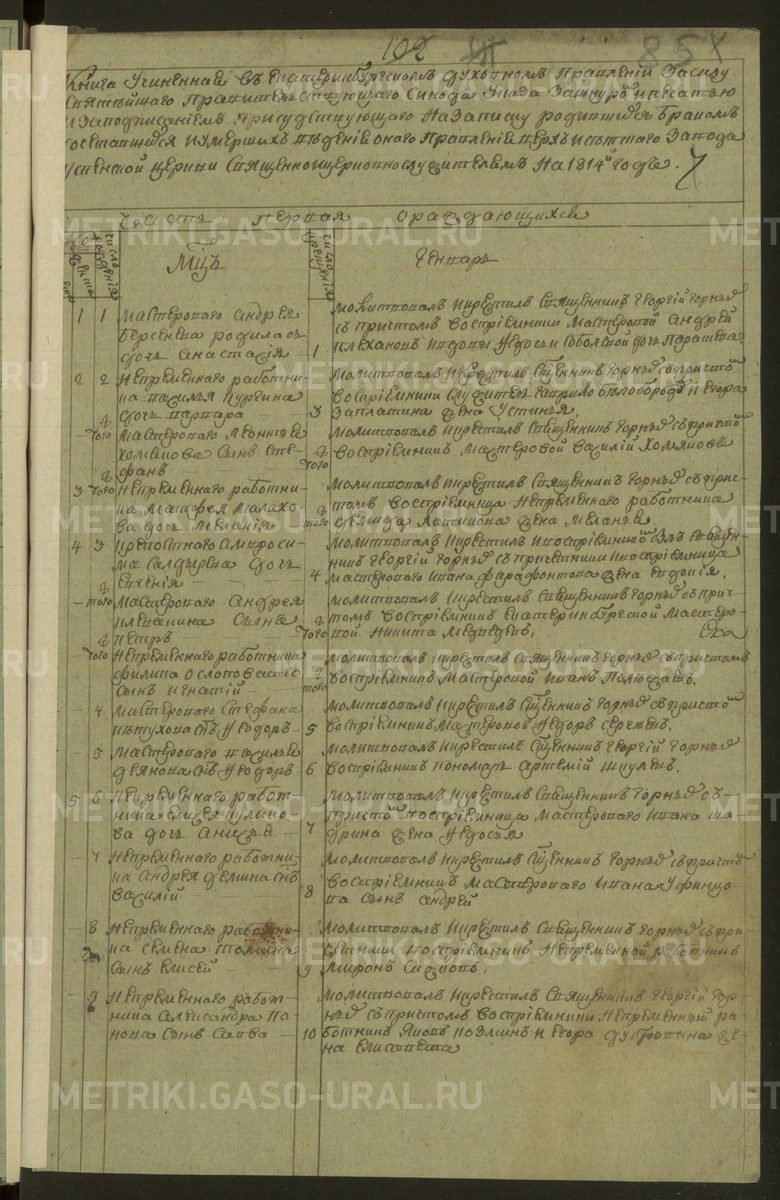 102
851
Книга Учиненная въ Екатеринбургскомъ духовномъ Правленіи Засилу
Святѣйшаго Правительствующаго Синода Указа Зашнуръ и печатью
и Заподписаніемъ присудствующаго На Записку родившихся бракомъ
сочетавшихся и умершихъ вѣденіе онаго Правленіе верхъ исетскаго Завода
успенской церкви Священно и церковнослужителемъ На 1814й годъ.
часть первая о раждающихся
число рожденія
число крещенія
Мцъ
Генварь
1 1 мастероваго андрея
берсенева родилась
дочь анастасія
1 молитвовалъ и крестилъ Священникъ георгій горныхъ
съ притчомъ воспріемники мастеровой андрей
плехановъ и вдовы Федосьи Соболевой дочь парашева
2 2 Непременнаго работни-
ка василья
дочь варвара
3 молитвовалъ и крестилъ Сщенникъ горныхъ съ притчо
воспріемники Служитель гаврило бѣлобородовъ и егора
Заплатина жена Устинья,
того мастероваго леонтья
хомякова сынъ сте-
фанъ
того молитвовалъ и крестилъ Священникъ горныхъ съ притчо
воспріемникъ мастеровой василій хомяковъ
3 того Непременнаго работни-
ка матфея малахо-
ва дочь меланія
того молитвовалъ и крестилъ Священникъ горныхъ съ прич-
томъ воспріемница Непременнаго работника
жена меланья.
4 3 крепостнаго амвроси-
ма дочь
евгенія
4 молитвовалъ и крестилъ и воспріемникомъ былъ Священ-
никъ георгій горныхъ съ причетники и воспріемница
мастероваго ивана жена евдокія.
того мастероваго андрея
плеханина сынъ
петръ
того молитвовалъ и крестилъ Священникъ горныхъ съ прич-
томъ воспріемникъ екатеринбургской мастеро-
вой никита медведевъ,
того Непременнаго работника
филипа ослоповскаго
сынъ игнатій
того молитвовалъ и крестилъ Священникъ горныхъ съ притчомъ
воспріемникъ мастеровой иванъ
4 мастероваго стефана
пѣтухова снъ Феодоръ
5 молитвовалъ и крестилъ Сщенникъ горныхъ съ притчо
воспріемникъ мастеровой Федоръ сергѣевъ.
5 мастероваго василья
деянова снъ Феодоръ
6 молитвовалъ и крестилъ Сщенникъ георгій горныхъ
воспріемникъ пономарь артемій шкулевъ.
5 6 Непременнаго работ-
ника елисея кулико-
ва дочь
7 молитвовалъ и крестилъ Священникъ горныхъ съ
притчо воспріемница мастероваго ивана ша-
врина жена Федосья
7 Непременнаго работни-
ка андрея демина снъ
василій
8 молитвовалъ и крестилъ Сщенникъ горныхъ съ притчо
воспріемникъ мастероваго ивана уфинцо
ва сынъ андрей
8 Непременнаго работни-
ка семена
сынъ елисей
9 молитвовалъ и крестилъ Священникъ горныхъ съ при-
четники воспріемникъ Непременной работникъ
миронъ
9 Непременнаго работ-
ника александра па-
нова сынъ савва
10 молитвовалъ и крестилъ Священникъ георгій гор-
ныхъ съ притчомъ воспріемники Непременный ра-
ботникъ яковъ и егора дубровина же-
на елисавета
METRIKI.GASO-URAL.RU